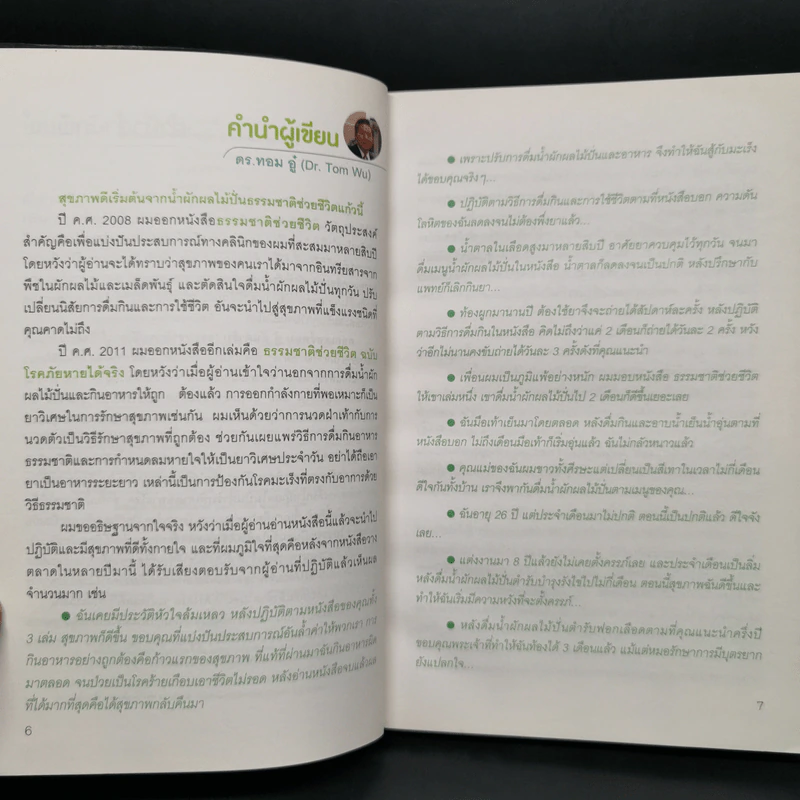 คำนำผู้เขียน
ดร.ทอม อู๋ (Dr. Tom Wu)
สุขภาพดีเริ่มต้นจากน้ำผักผลไม้ปั่นธรรมชาติช่วยชีวิตแก้วนี้
ปี ค.ศ. 2008 ผมออกหนังสือธรรมชาติช่วยชีวิต วัตถุประสงค์
สำคัญคือเพื่อแบ่งปันประสบการณ์ทางคลินิกของผมที่สะสมมาหลายสิบปี
โดยหวังว่าผู้อ่านจะได้ทราบว่าสุขภาพของคนเราได้มาจากอินทรียสารจาก
พืชในผักผลไม้และเมล็ดพันธุ์ และตัดสินใจดื่มน้ำผักผลไม้ปั่นทุกวัน ปรับ
เปลี่ยนนิสัยการดื่มกินและการใช้ชีวิต อันจะนำไปสู่สุขภาพที่แข็งแรงชนิดที่
คุณคาดไม่ถึง
ปี ค.ศ. 2011 ผมออกหนังสืออีกเล่มคือ ธรรมชาติช่วยชีวิต ฉบับ
โรคภัยหายได้จริง โดยหวังว่าเมื่อผู้อ่านเข้าใจว่านอกจากการดื่มน้ำผัก
ผลไม้ปั่นและกินอาหารให้ถูก ต้องแล้ว การออกกำลังกายที่พอเหมาะก็เป็น
ยาวิเศษในการรักษาสุขภาพเช่นกัน ผมเห็นด้วยว่าการนวดฝ่าเท้ากับการ
นวดตัวเป็นวิธีรักษาสุขภาพที่ถูกต้อง ช่วยกันเผยแพร่วิธีการดื่มกินอาหาร
ธรรมชาติและการกำหนดลมหายใจให้เป็นยาวิเศษประจำวัน อย่าได้ถือเอา
ยาเป็นอาหารระยะยาว เหล่านี้เป็นการป้องกันโรคมะเร็งที่ตรงกับอาการด้วย
วิธีธรรมชาติ
ผมขออธิษฐานจากใจจริง หวังว่าเมื่อผู้อ่านอ่านหนังสือนี้แล้วจะนำไป
ปฏิบัติและมีสุขภาพที่ดีทั้งกายใจ และที่ผมภูมิใจที่สุดคือหลังจากหนังสือวาง
ตลาดในหลายปีมานี้ ได้รับเสียงตอบรับจากผู้อ่านที่ปฏิบัติแล้วเห็นผล
จำนวนมาก เช่น
● ฉันเคยมีประวัติหัวใจล้มเหลว หลังปฏิบัติตามหนังสือของคุณทั้ง
3 เล่ม สุขภาพก็ดีขึ้น ขอบคุณที่แบ่งปันประสบการณ์อันล้ำค่าให้พวกเรา การ
กินอาหารอย่างถูกต้องคือก้าวแรกของสุขภาพ ที่แท้ที่ผ่านมาฉันกินอาหารผิด
มาตลอด จนป่วยเป็นโรคร้ายเกือบเอาชีวิตไม่รอด หลังอ่านหนังสือจบแล้วผล
ที่ได้มากที่สุดคือได้สุขภาพกลับคืนมา
6
● เพราะปรับการดื่มน้ำผักผลไม้ปั่นและอาหาร จึงทำให้ฉันสู้กับมะเร็ง
ได้ขอบคุณจริงๆ...
● ปฏิบัติตามวิธีการดื่มกินและการใช้ชีวิตตามที่หนังสือบอก ความดัน
โลหิตของฉันลดลงจนไม่ต้องพึ่งยาแล้ว...
● น้ำตาลในเลือดสูงมาหลายสิบปี อาศัยยาควบคุมไว้ทุกวัน จนมา
ดื่มเมนูน้ำผักผลไม้ปั่นในหนังสือ น้ำตาลก็ลดลงจนเป็นปกติ หลังปรึกษากับ
แพทย์ก็เลิกกินยา...
● ท้องผูกมานานปี ต้องใช้ยาจึงจะถ่ายได้สัปดาห์ละครั้ง หลังปฏิบัติ
ตามวิธีการดื่มกินในหนังสือ คิดไม่ถึงว่าแค่ 2 เดือนก็ถ่ายได้วันละ 2 ครั้ง หวัง
ว่าอีกไม่นานคงขับถ่ายได้วันละ 3 ครั้งดังที่คุณแนะนำ
● เพื่อนผมเป็นภูมิแพ้อย่างหนัก ผมมอบหนังสือ ธรรมชาติช่วยชีวิต
ให้เขาเล่มหนึ่ง เขาดื่มน้ำผักผลไม้ปั่นไป 2 เดือนก็ดีขึ้นเยอะเลย
● ฉันมือเท้าเย็นมาโดยตลอด หลังดื่มกินและอาบน้ำเย็นน้ำอุ่นตามที่
หนังสือบอก ไม่ถึงเดือนมือเท้าก็เริ่มอุ่นแล้ว ฉันไม่กลัวหนาวแล้ว...
● คุณแม่ของฉันผมขาวทั้งศีรษะแต่เปลี่ยนเป็นสีเทาในเวลาไม่กี่เดือน
ดีใจกันทั้งบ้าน เราจึงพากันดื่มน้ำผักผลไม้ปั่นตามเมนูของคุณ...
● ฉันอายุ 26 ปี แต่ประจำเดือนมาไม่ปกติ ตอนนี้เป็นปกติแล้ว ดีใจจัง
เลย...
● แต่งงานมา 8 ปีแล้วยังไม่เคยตั้งครรภ์เลย และประจำเดือนเป็นลิ่ม
หลังดื่มน้ำผักผลไม้ปั่นตำรับบำรุงรังไข่ไปไม่กี่เดือน ตอนนี้สุขภาพฉันดีขึ้นและ
ทำให้ฉันเริ่มมีความหวังที่จะตั้งครรภ์...
● หลังดื่มน้ำผักผลไม้ปั่นตำรับฟอกเลือดตามที่คุณแนะนำครึ่งปี
ขอบคุณพระเจ้าที่ทำให้ฉันท้องได้ 3 เดือนแล้ว แม้แต่หมอรักษาการมีบุตรยาก
ยังแปลกใจ...
7